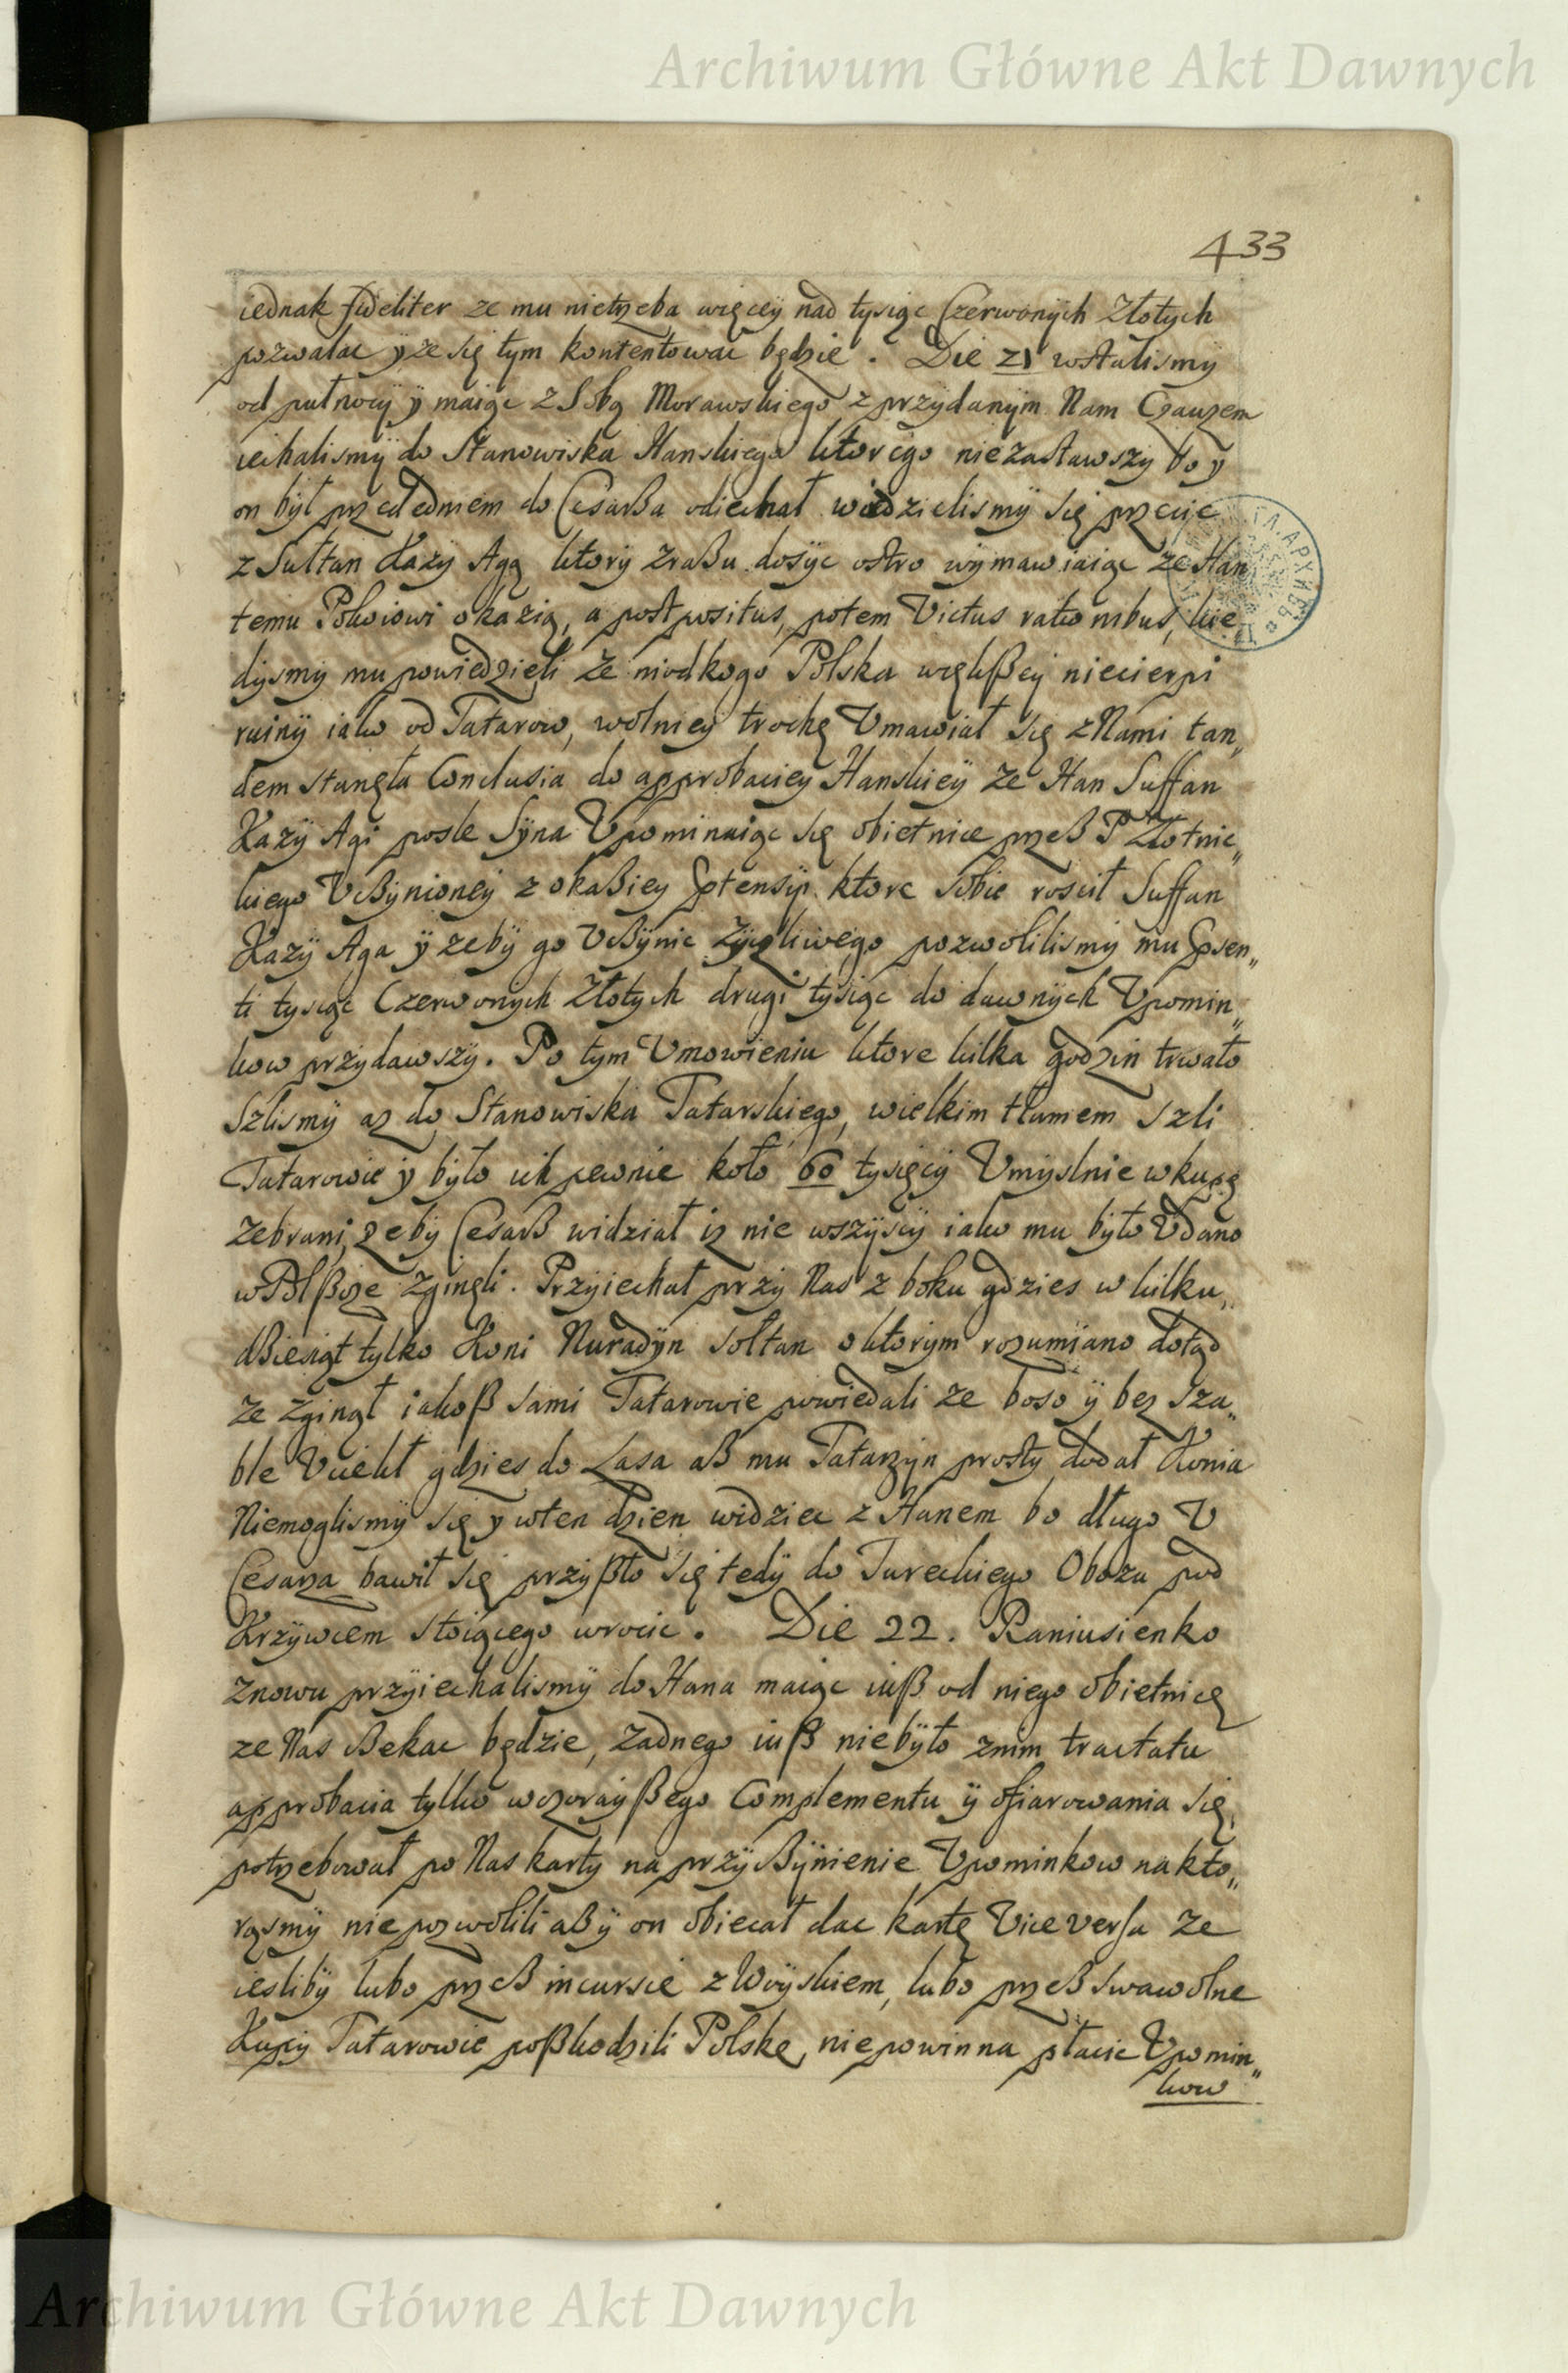 Archiwum Główne Akt Dawnych
433
iednak fideliter ze mu nietrzeba więcey nad tysiąc Czerwonych Złotych
pozwalac y ze się tym kontentowac będzie. Die 21 wstalismy
od pułnocy y maiąc z Sobą Morawskiego z przydanym Nam Czauzem
iechalismy do Stanowiska Hanskiego ktorego niezastawszy bo y
on był przededniem do Cesarßa odiechał widzielismy się przecie
z Sultan Kazy Agą ktory zraßu dosyc ostro wymawiaiąc ze Han
temu Pokoiowi okazią, a postpositus, potem Victus rationibus, kie
dysmy mu powiedzieli ze niodkogo Polska więkßey niecierpi
ruiny iako od Tatarow, wolniey trochę Umawiał się z Nami tan„
dem stanęła Conclusia do approbaciey Hanskiey ze Han Suffan
Kazy Agi posle Syna Upominaiąc się obietnice przeß P Złotnic„
kiego Uczynioney z okaßiey Ptensyi ktore sobie roscił Suffan
Kazy Aga y zeby go Uczynic Zyczliwego pozwolilismy mu Prsen„
ti tysiąc Czerwonych Złotych drugi tysiąc do dawnych Upomin„
kow przydawszy. Po tym Umowieniu ktore kilka godzin trwało
Szlismy az do Stanowiska Tatarskiego, wielkim tłumem szli
Tatarowie y było ich pewnie koło 60 tysięcy Umyslnie w kupę
zebrani, zeby Cesarß widział iz nie wszyscy iako mu było Udano
w Polßcze zginęli. Przyiechał przy Nas z boku gdzies w kilku„
dßiesiąt tylko Koni Nuradyn sołtan o ktorym rozumiano dotąd
ze zginął iakoß sami Tatarowie powiedali ze boso y bez sza„
ble Uciekł gdzies do Lasa aß mu Tatarzyn prosty dodał Konia
Niemoglismy się y wten dzien widziec z Hanem bo długo U
Cesarza bawił się przyßło się tedy do Tureckiego Obozu pod
Krzywcem stoiącego wrocic. Die 22. Raniusienko
znowu przyiechalismy do Hana maiąc iuß od niego obietnicę
ze Nas czekac będzie, zadnego iuß niebyło znim tractatu
approbacia tylko wczorayßego Complementu y ofiarowania się,
potrzebował po Nas karty na przyczynienie Upominkow na kto„
rąsmy niepozwolili aßy on obiecał dac kartę Vice versa ze
iesliby lubo przeß incursie z Woyskiem, lubo przeß swawolne
Kupy Tatarowie poßkodzili Polskę, niepowinna płacic Upomin„
kow
Archiwum Główne Akt Dawnych